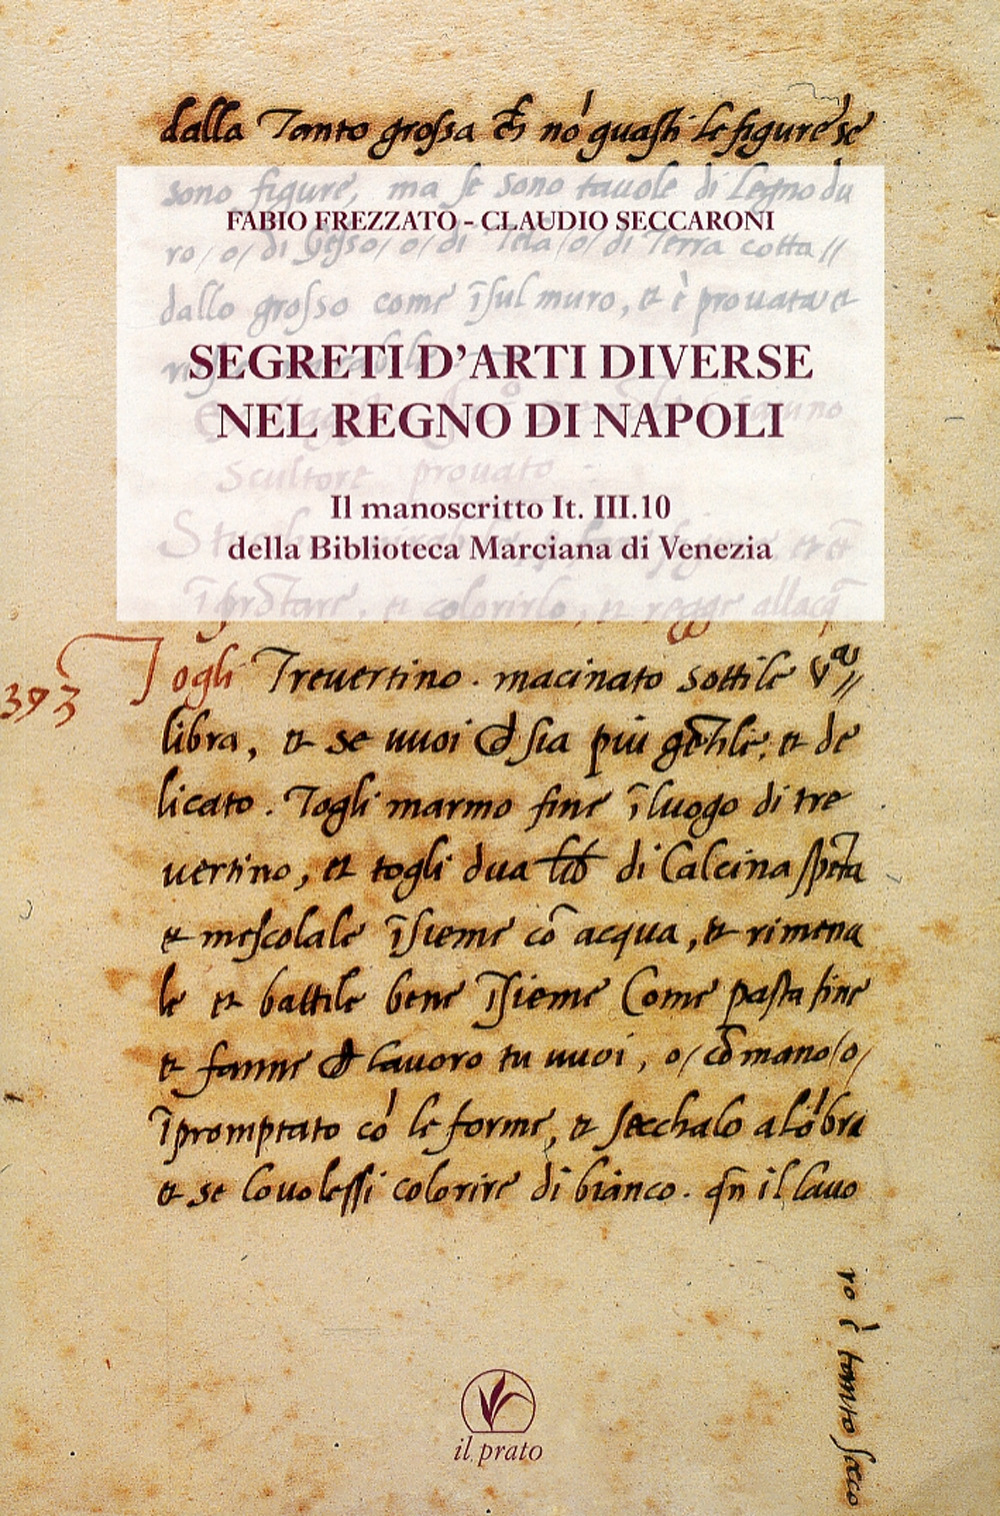 dalla Tanto grossa & nō guasti le figure se
sono figure, ma se sono tauole di Legno du
ro/o/di Gesso/o/di Tela/o/di Terra cotta//
dallo grosso come ī sul muro, et è prouata et
FABIO FREZZATO - CLAUDIO SECCARONI
SEGRETI D'ARTI DIVERSE
NEL REGNO DI NAPOLI
Scultore prouato
Il manoscritto It. III.10
della Biblioteca Marciana di Venezia
īprōtare, et colorirlo, et regge allacq̄
393 Togli Treuertino. macinato sottile va//
libra, et se uuoi ch sia piu gētile, et de
licato. Togli marmo fine ī luogo di tre
uertino, et togli dua lib di Calcina spēta
et mescolale īsieme cō acqua, et rimena
le et battile bene īsieme Come pasta fine
et fanne ch lauoro tu uuoi, o/cō mano/o/
īpromptato cō le forme, et secchalo a lōbra
et se lo uolessi colorire di bianco. qn il lauo
ro è tanto secco
il prato